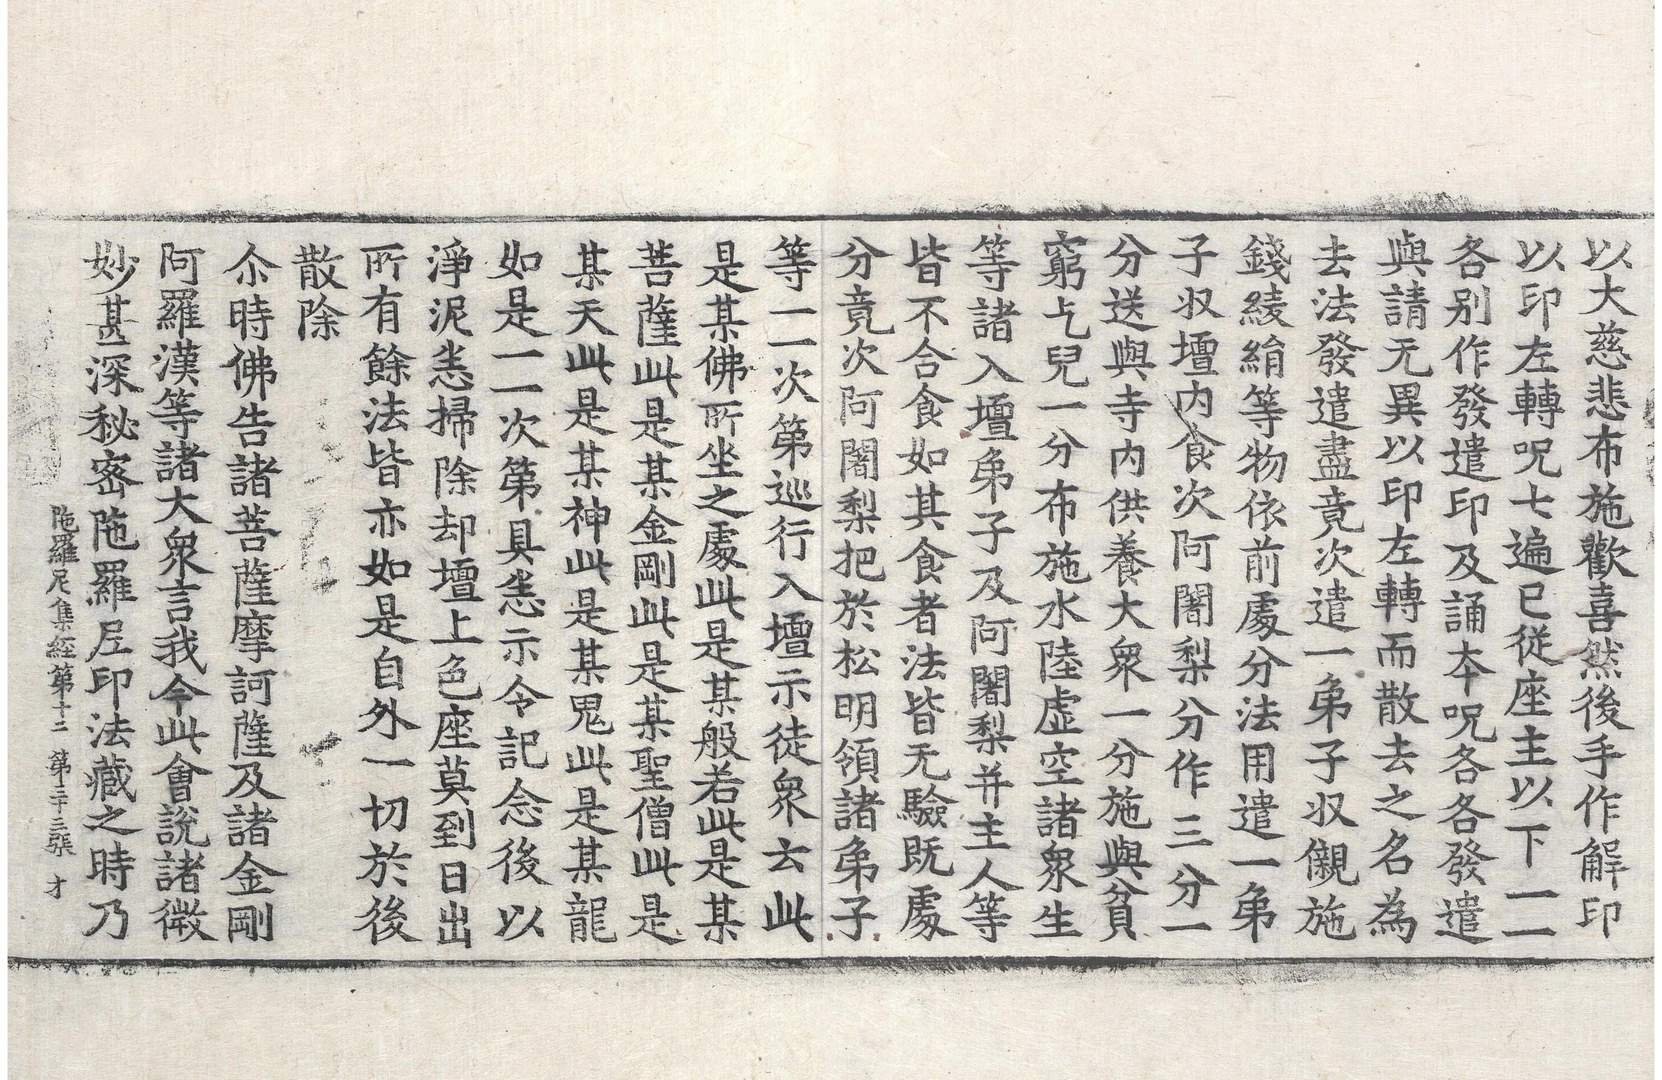 以大慈悲布施歡喜然後手作解印
以印左轉呪七遍已従座主以下一一
各别作發遣印及誦本呪各各發遣
與請无異以印左轉而散去之名為
去法發遣盡竟次遣一弟子収儭施
錢綾絹等物依前處分法用遣一弟
子収壇內食次阿闍梨分作三分一
分送與寺內供養大衆一分施與貧
窮乞兒一分布施水陸虛空諸衆生
等諸入壇弟子及阿闍梨并主人等
皆不合食如其食者法皆无驗既處
分竟次阿闍梨把於松明領諸弟子
等一一次第巡行入壇示徒衆云此
是某佛所坐之處此是某般若此是某
菩薩此是某金剛此是某聖僧此是
某天此是某神此是某鬼此是某龍
如是一一次第具悉示令記念後以
淨泥悉掃除却壇上色座莫到日出
所有餘法皆亦如是自外一切於後
散除
尒時佛告諸菩薩摩訶薩及諸金剛
阿羅漢等諸大衆言我今此會說諸微
妙甚深秘密陁羅尼印法藏之時乃
陁羅尼集經第十二 第三十三張 才